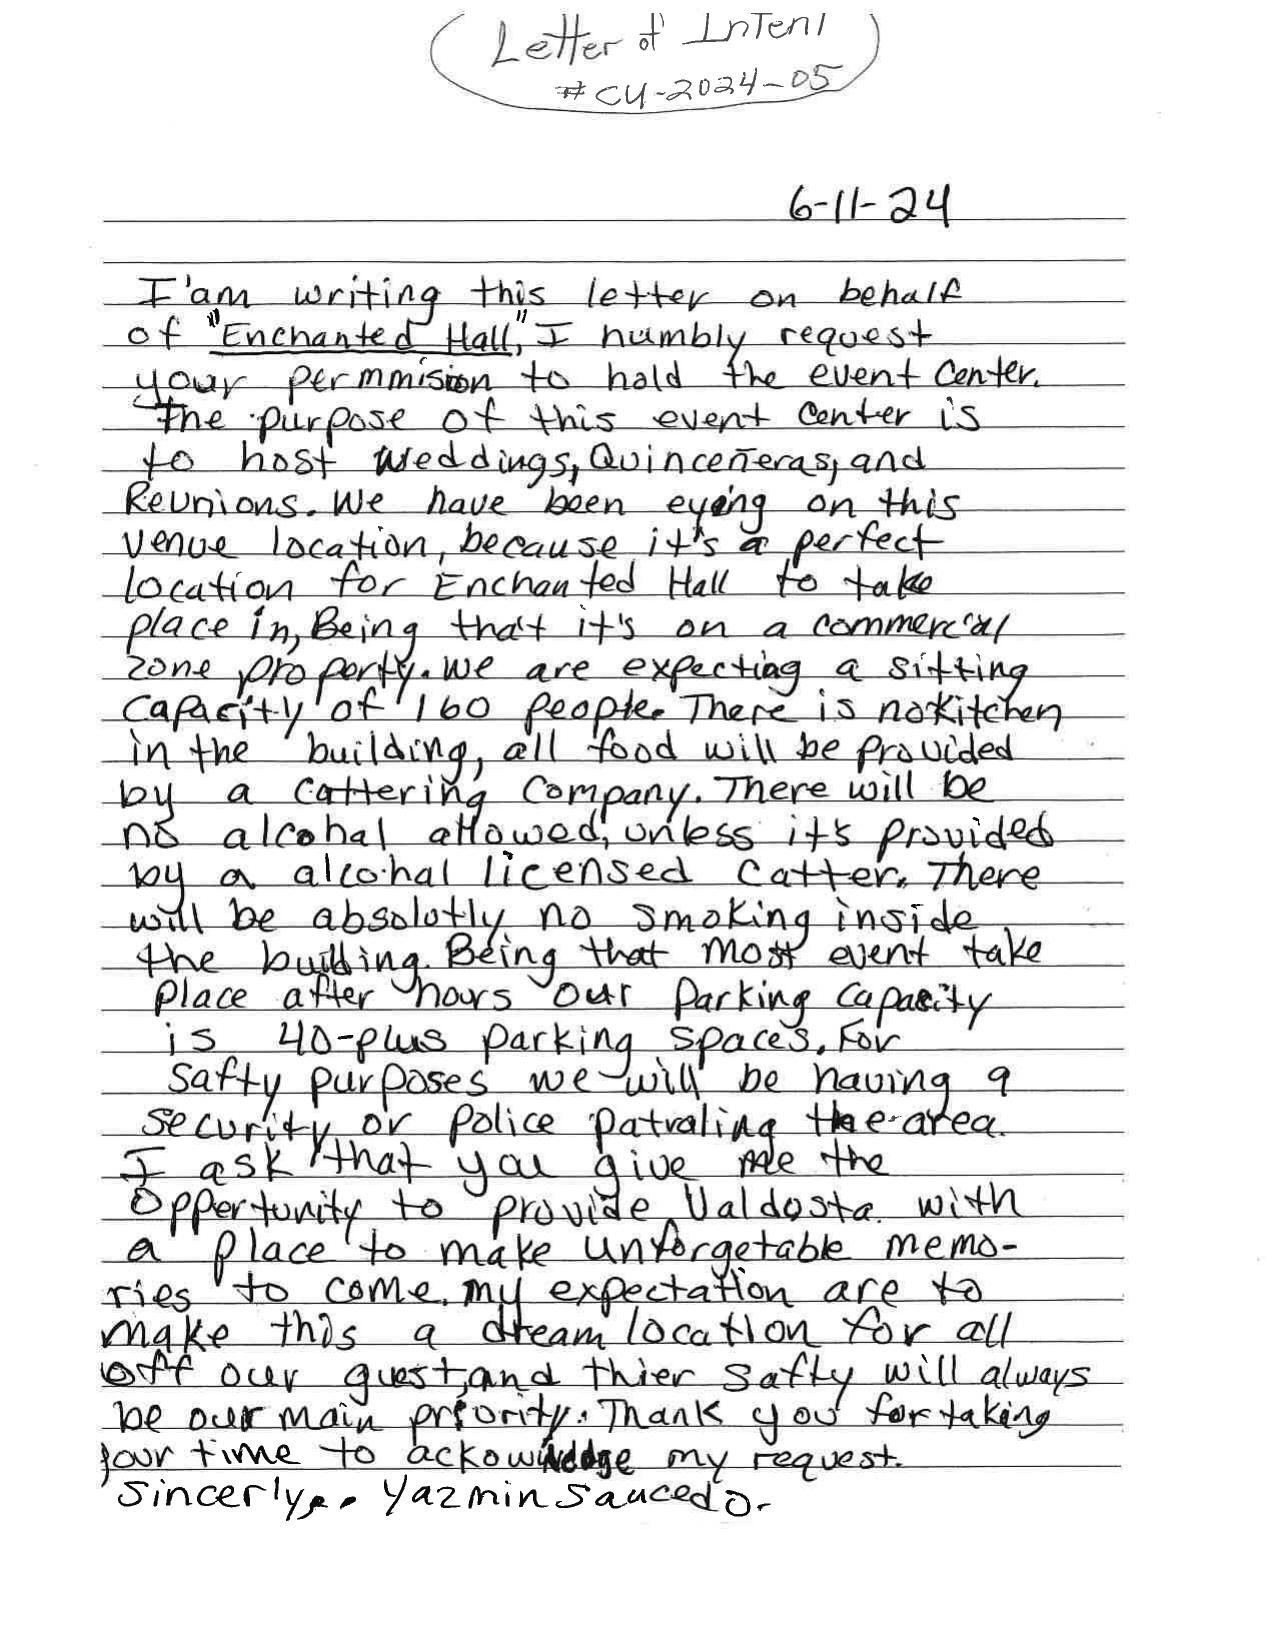 Letter of Intent
#CU-2024-05
6-11-24
I'am writing this letter on behalf
of "Enchanted Hall," I humbly request
your permmision to hold the event Center.
The purpose of this event Center is
to host weddings, Quinceñeras, and
Reunions. We have been eyeing on this
venue location, because it's a perfect
location for Enchanted Hall to take
place in, Being that it's on a commercial
zone property. We are expecting a sitting
capacity of 160 people. There is no Kitchen
in the building, all food will be provided
by a Cattering Company. There will be
no alcohal allowed, unless it's provided
by a alcohal licensed Catter. There
will be absolutly no smoking inside
the building. Being that most event take
Place after hours our Parking Capacity
is 40-plus parking spaces. For
Safty purposes we will be having a
security or Police patroling the area.
I ask that you give me the
Oppertunity to provide Valdosta with
a place to make unforgetable memo-
ries to come. my expectation are to
make this a dream location for all
off our guest, and thier safty will always
be our main priority. Thank you for taking
your time to ackowledge my request.
Sincerly,. Yazmin Saucedo.